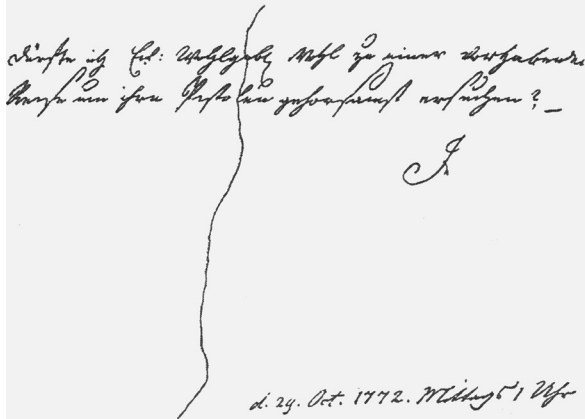 Dürfte ich Ew: Wohlgeb. wohl zu einer vorhabenden
Reise um ihre Pistolen gehorsamst ersuchen? _
J.
d. 29. Oct. 1772. Mittags 1 Uhr